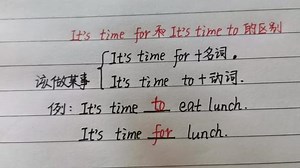 It's time for和It's time to 的区别
It's time for+名词。
该做某事
It's time to+动词.
例: It's time to eat lunch.
It's time for lunch.